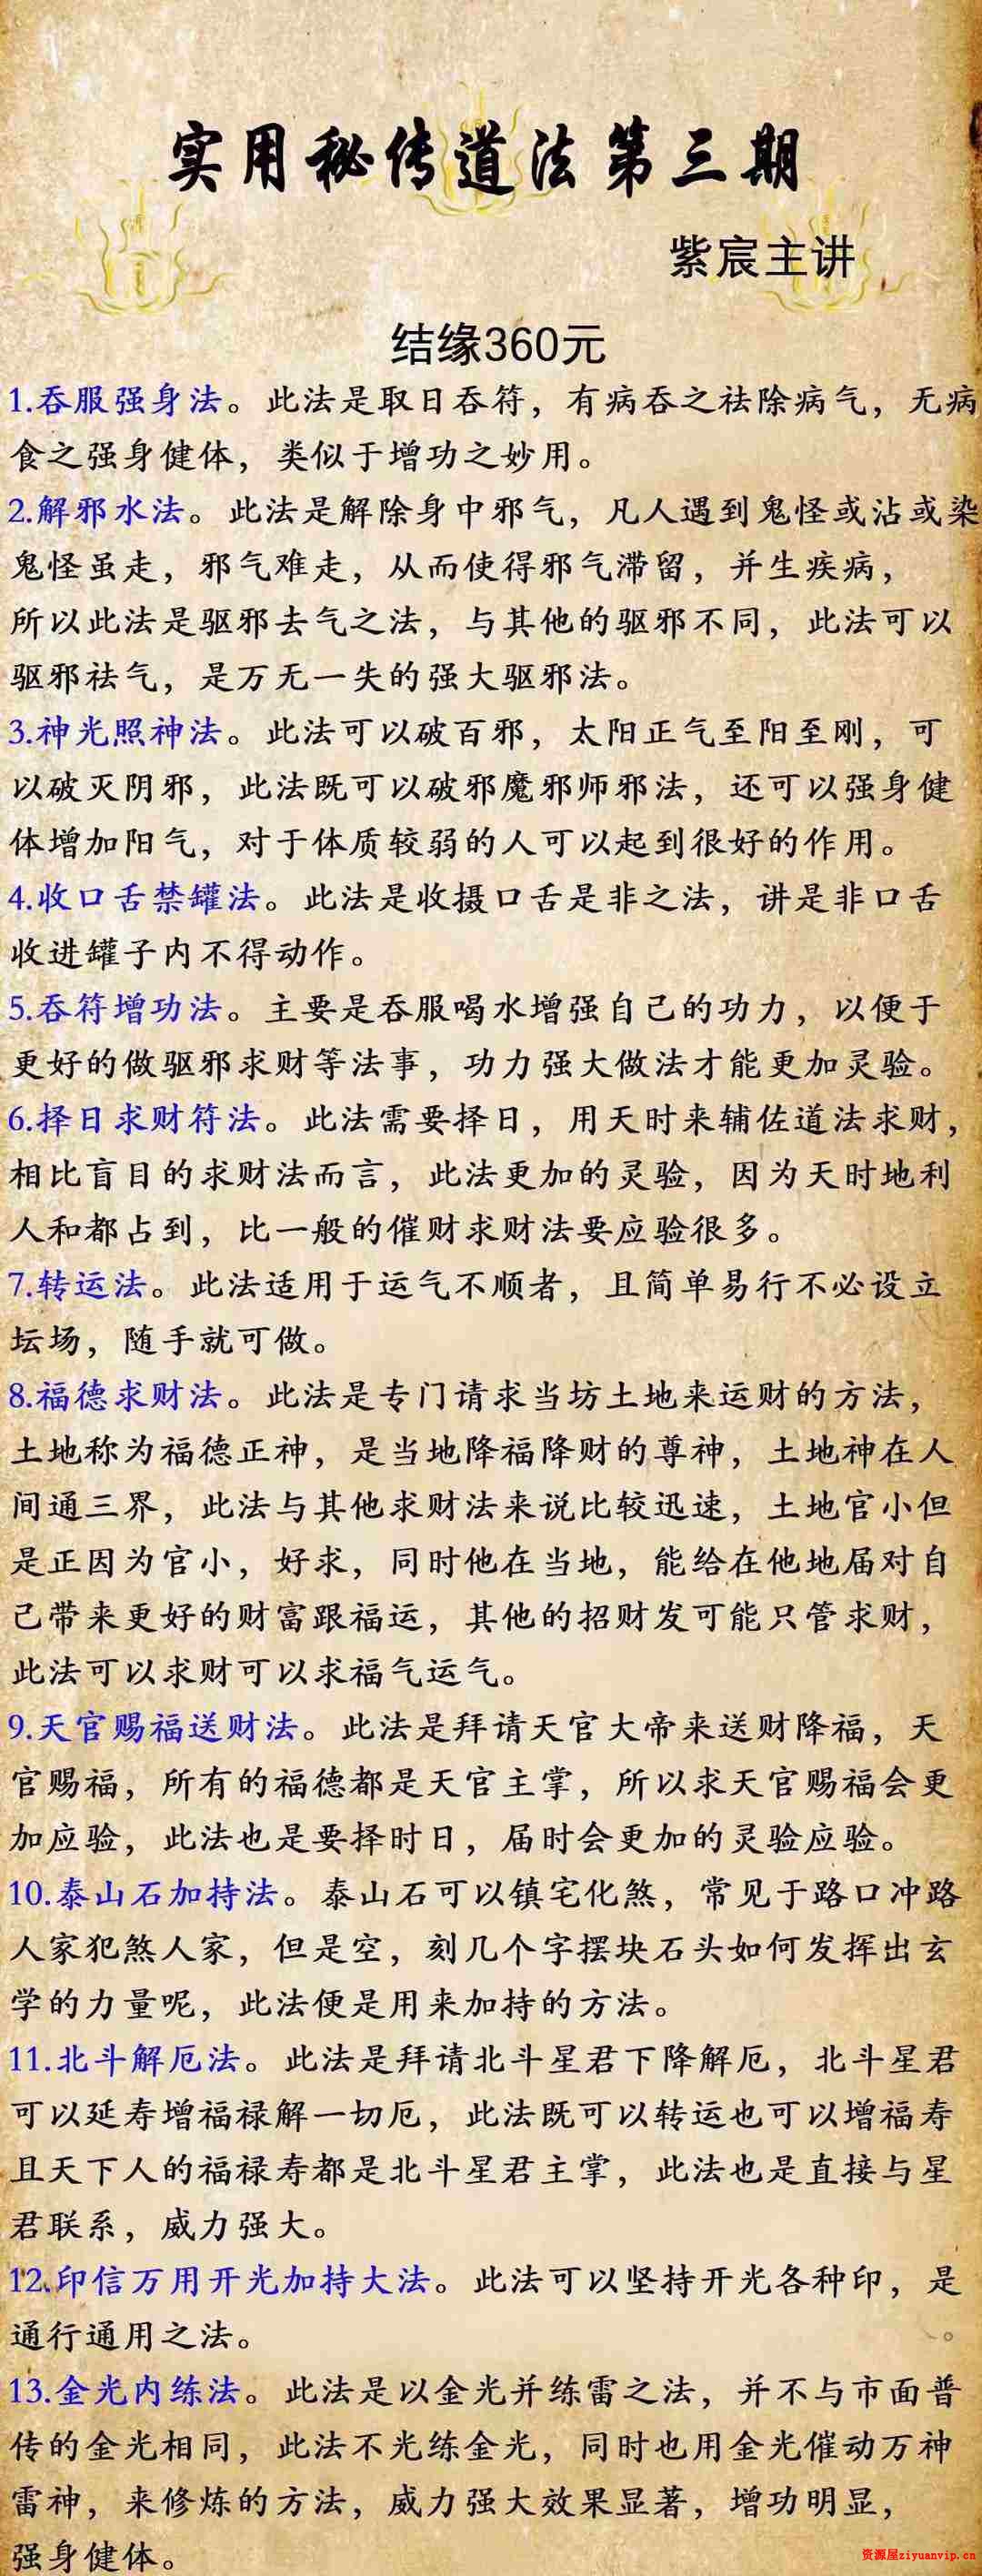 实用秘传道法第三期
紫宸主讲
结缘360元
1.吞服强身法。此法是取日吞符，有病吞之祛除病气，无病
食之强身健体，类似于增功之妙用。
2.解邪水法。此法是解除身中邪气，凡人遇到鬼怪或沾或染
鬼怪虽走，邪气难走，从而使得邪气滞留，并生疾病，
所以此法是驱邪去气之法，与其他的驱邪不同，此法可以
驱邪祛气，是万无一失的强大驱邪法。
3.神光照神法。此法可以破百邪，太阳正气至阳至刚，可
以破灭阴邪，此法既可以破邪魔邪师邪法，还可以强身健
体增加阳气，对于体质较弱的人可以起到很好的作用。
4.收口舌禁罐法。此法是收摄口舌是非之法，讲是非口舌
收进罐子内不得动作。
5.吞符增功法。主要是吞服喝水增强自己的功力，以便于
更好的做驱邪求财等法事，功力强大做法才能更加灵验。
6.择日求财符法。此法需要择日，用天时来辅佐道法求财，
相比盲目的求财法而言，此法更加的灵验，因为天时地利
人和都占到，比一般的催财求财法要应验很多。
7.转运法。此法适用于运气不顺者，且简单易行不必设立
坛场，随手就可做。
8.福德求财法。此法是专门请求当坊土地来运财的方法，
土地称为福德正神，是当地降福降财的尊神，土地神在人
间通三界，此法与其他求财法来说比较迅速，土地官小但
是正因为官小，好求，同时他在当地，能给在他地届对自
己带来更好的财富跟福运，其他的招财发可能只管求财，
此法可以求财可以求福气运气。
9.天官赐福送财法。此法是拜请天官大帝来送财降福，天
官赐福，所有的福德都是天官主掌，所以求天官赐福会更
加应验，此法也是要择时日，届时会更加的灵验应验。
10.泰山石加持法。泰山石可以镇宅化煞，常见于路口冲路
人家犯煞人家，但是空，刻几个字摆块石头如何发挥出玄
学的力量呢，此法便是用来加持的方法。
11.北斗解厄法。此法是拜请北斗星君下降解厄，北斗星君
可以延寿增福禄解一切厄，此法既可以转运也可以增福寿
且天下人的福禄寿都是北斗星君主掌，此法也是直接与星
君联系，威力强大。
12.印信万用开光加持大法。此法可以坚持开光各种印，是
通行通用之法。
13.金光内练法。此法是以金光并练雷之法，并不与市面普
传的金光相同，此法不光练金光，同时也用金光催动万神
雷神，来修炼的方法，威力强大效果显著，增功明显，
强身健体。
资源屋ziyuanvip.cn